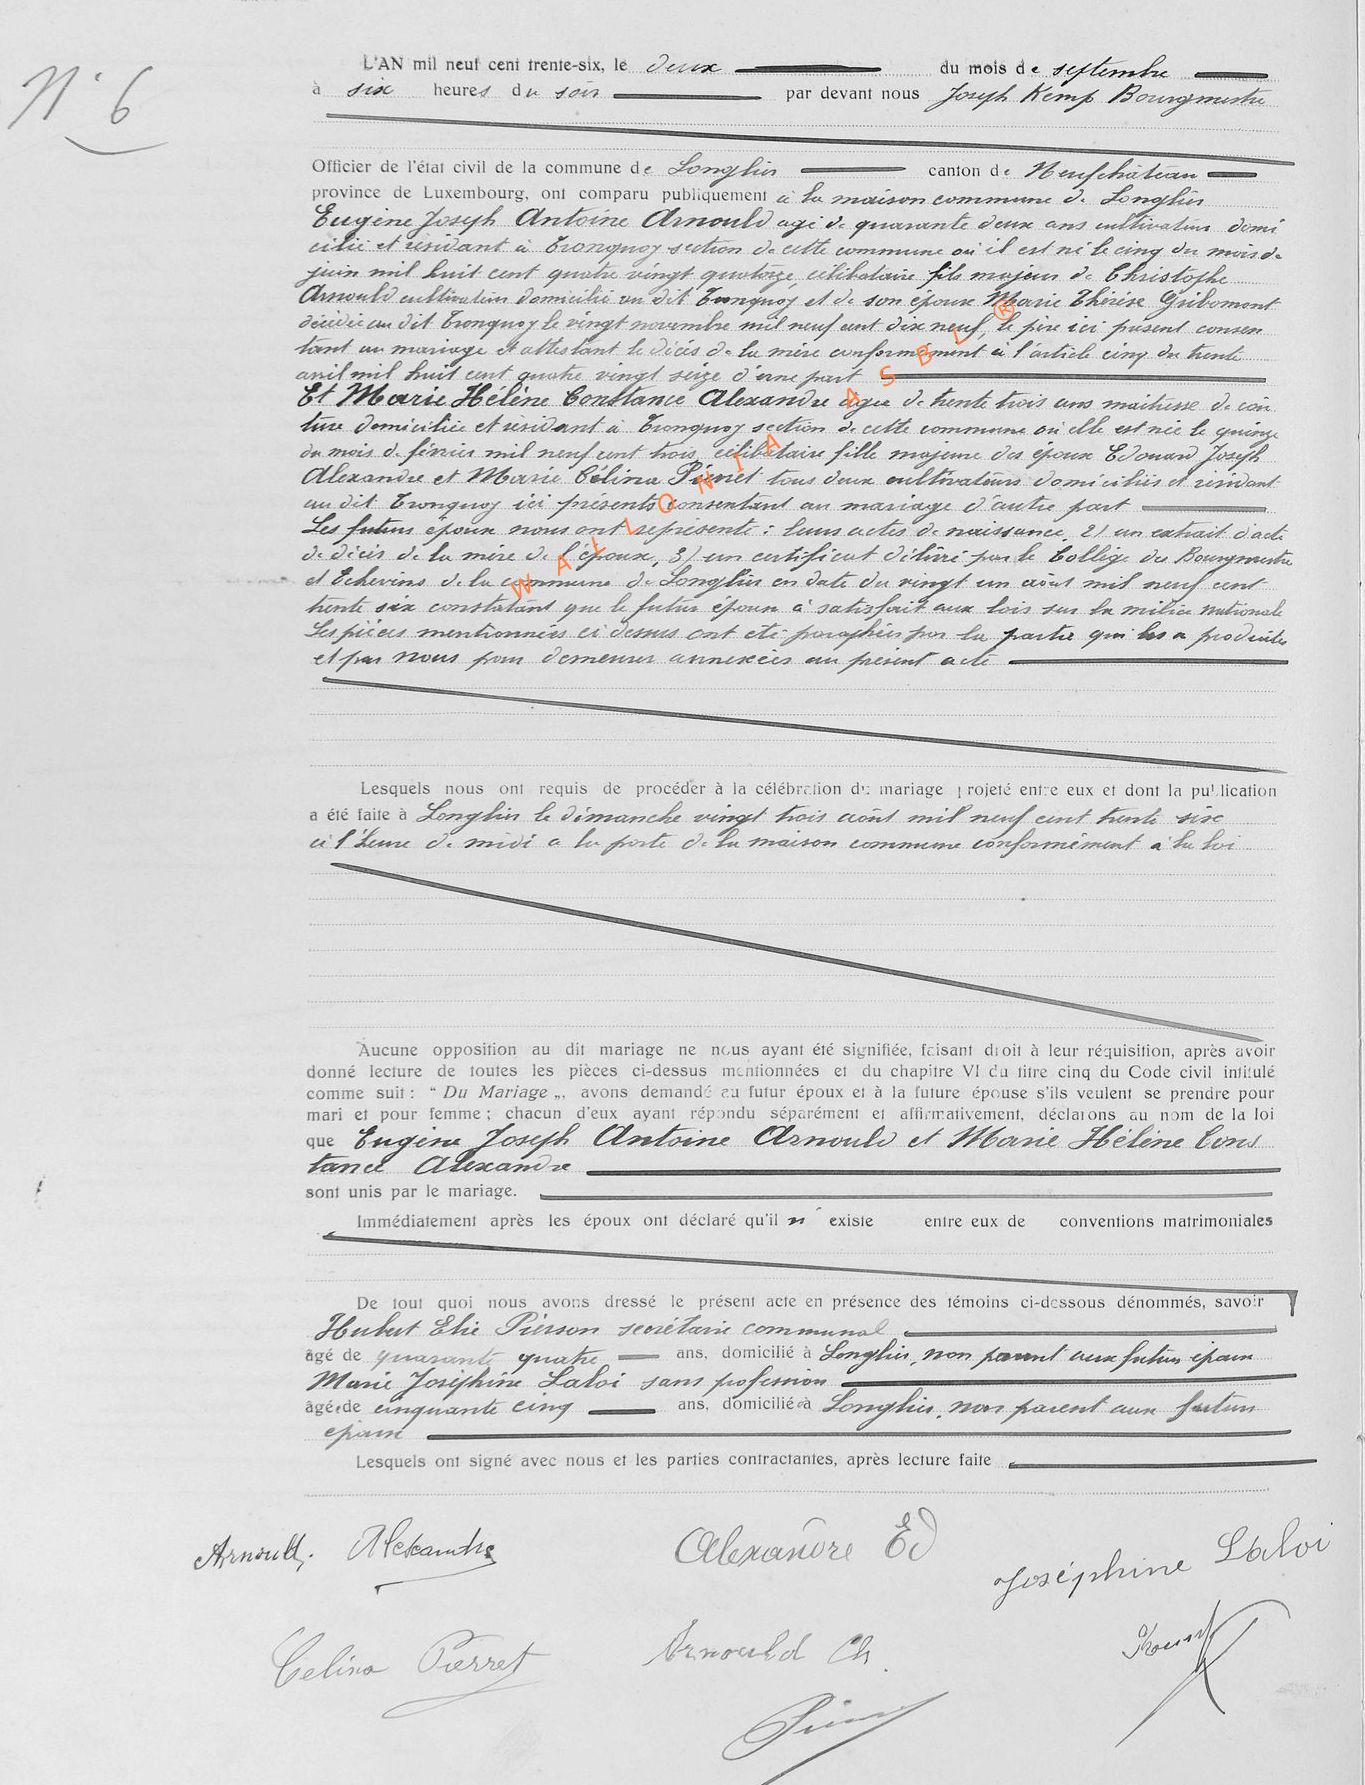 N° 6
L'AN mil neuf cent trente-six, le deux du mois de septembre
à six heures du soir par devant nous Joseph Kemp Bourgmestre
Officier de l'état civil de la commune de Longlier canton de Neufchâteau
province de Luxembourg, ont comparu publiquement à la maison commune de Longlier
Eugène Joseph Antoine Arnould agé de quarante deux ans cultivateur domi
cilié et résidant à Tronquoy section de cette commune où il est né le cinq du mois de
juin mil huit cent quatre vingt quatorze, célibataire fils majeur de Christophe
Arnould cultivateur domicilié au dit Tronquoy et de son épouse Marie Thérèse Gribomont
décédée au dit Tronquoy le vingt novembre mil neuf cent dix neuf, le père ici présent consen
tant au mariage et attestant le décès de la mère conformément à l'article cinq du trente
avril mil huit cent quatre vingt seize d'une part
Et Marie Hélène Constance Alexandre agée de trente trois ans maitresse de cou
ture domiciliée et résidant à Tronquoy section de cette commune où elle est née le quinze
du mois de février mil neuf cent trois, célibataire fille majeure des époux Edouard Joseph
Alexandre et Marie Célina Pierret tous deux cultivateurs domiciliés et résidant
au dit Tronquoy ici présents consentant au mariage d'autre part
Les futurs époux nous ont représenté : leurs actes de naissance, 2) un extrait d'acte
de décès de la mère de l'époux, 3) un certificat délivré par le Collège des Bourgmestre
et Echevins de la commune de Longlier en date du vingt un août mil neuf cent
trente six constatant que le futur époux à satisfait aux lois sur la milice nationale
Les pièces mentionnées ci dessus ont été paraphées par la partie qui les a produites
et par nous pour demeurer annexées au présent acte
WALLONIA ASBL ®
Lesquels nous ont requis de procéder à la célébration du mariage projeté entre eux et dont la publication
a été faite à Longlier le dimanche vingt trois août mil neuf cent trente six
à l'heure de midi a la porte de la maison commune conformément à la loi
Aucune opposition au dit mariage ne nous ayant été signifiée, faisant droit à leur réquisition, après avoir
donné lecture de toutes les pièces ci-dessus mentionnées et du chapitre VI du titre cinq du Code civil intitulé
comme suit : “ Du Mariage „, avons demandé au futur époux et à la future épouse s'ils veulent se prendre pour
mari et pour femme ; chacun d'eux ayant répondu séparément et affirmativement, déclarons au nom de la loi
que Eugène Joseph Antoine Arnould et Marie Hélène Cons
tance Alexandre
sont unis par le mariage.
Immédiatement après les époux ont déclaré qu'il n' existe entre eux de conventions matrimoniales
De tout quoi nous avons dressé le présent acte en présence des témoins ci-dessous dénommés, savoir
Hubert Elie Pierson secrétaire communal
âgé de quarante quatre ans, domicilié à Longlier, non parent aux futurs époux
Marie Joséphine Laloi sans profession
âgée de cinquante cinq ans, domiciliée à Longlier, non parent aux futurs
époux
Lesquels ont signé avec nous et les parties contractantes, après lecture faite
Arnould. Alexandre Alexandre Ed Joséphine Laloi
Celina Pierret Arnould Ch.